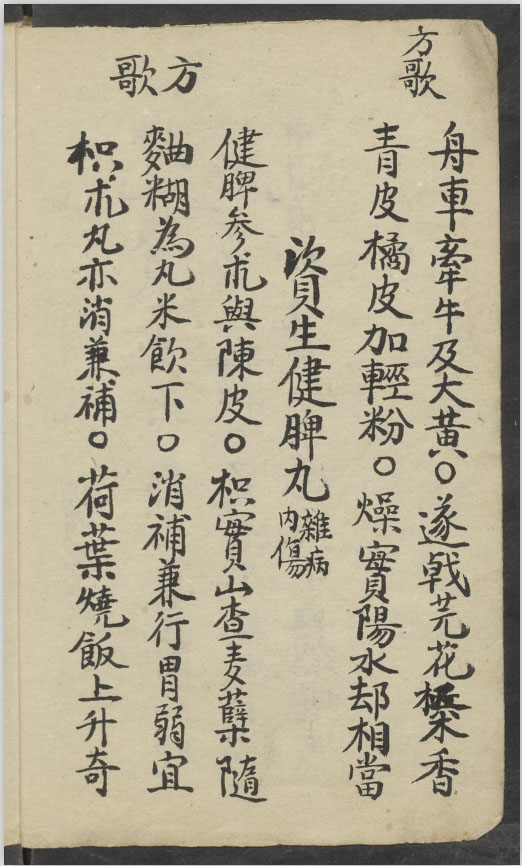 方歌
舟車牽牛及大黃○遂戟芫花香
青皮橘皮加輕粉○燥實陽水却相當
資生健脾丸
雜病
內傷
方歌
健脾參朮與陳皮○枳實山查麦蘖隨
麯糊為丸米飲下○消補兼行胃弱宜
枳朮丸亦消兼補○荷葉燒飯上升奇